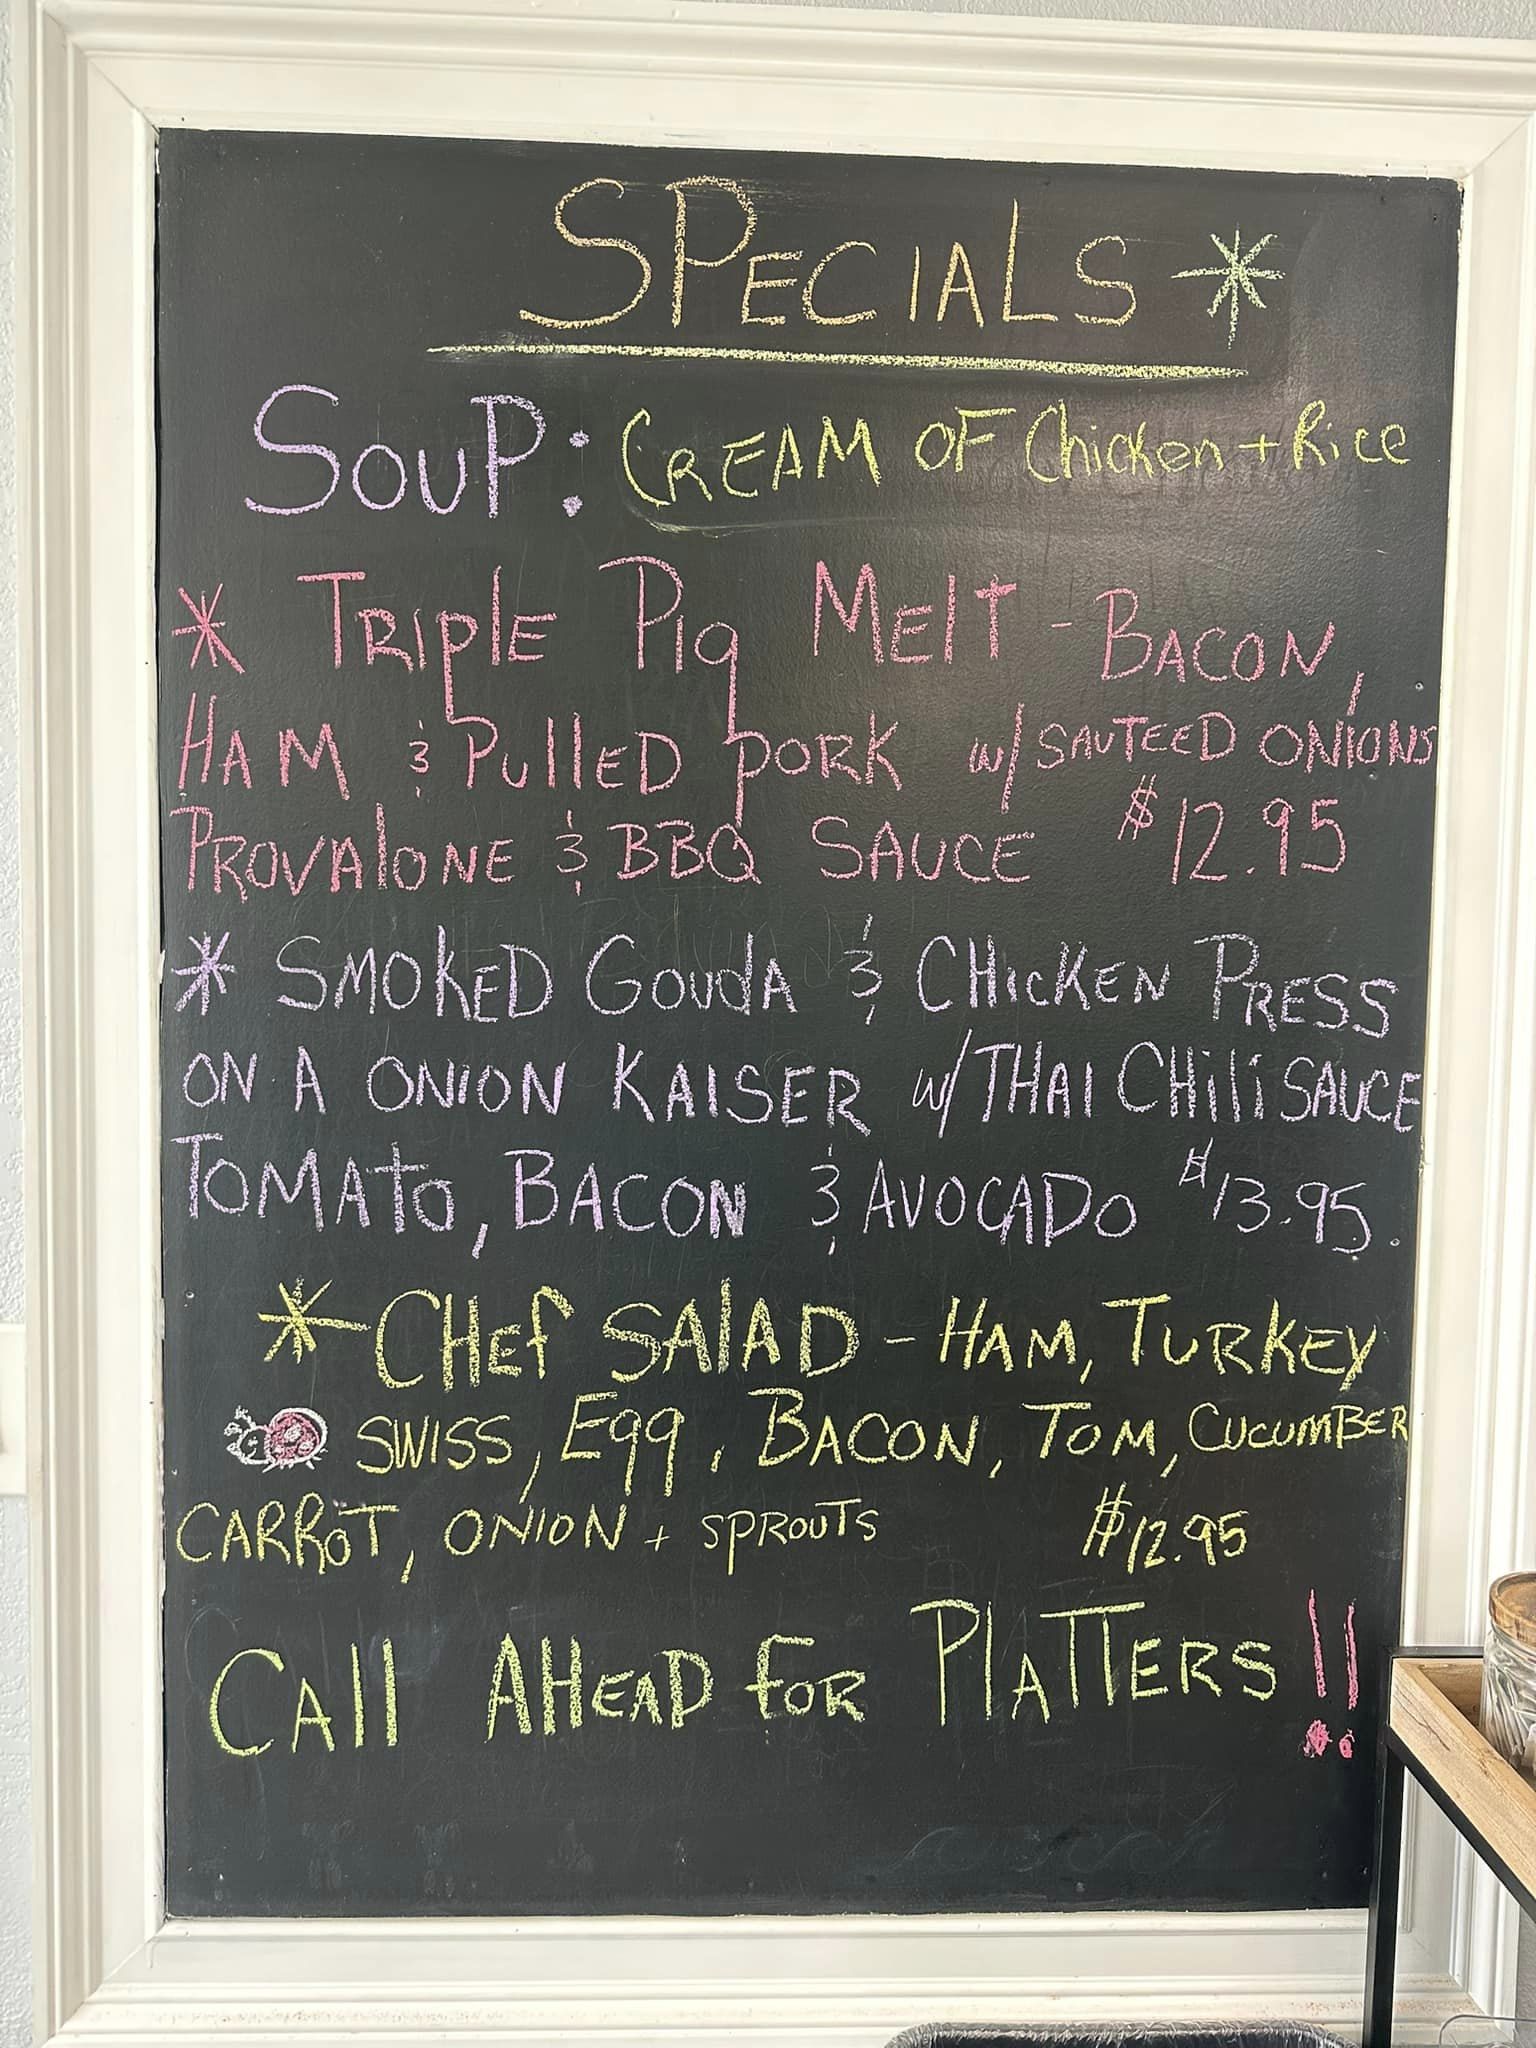 SPECIALS
SOUP: CREAM OF Chicken + Rice
* TRIPLE PIg MElT - BACON,
HAM & PUllED PORK w/ SAUTEED ONIONS
PROVAlONE & BBQ SAUCE $12.95
* SMOKED GOUDA & CHICKEN PRESS
ON A ONION KAISER w/ THAI CHili SAUCE
TOMATO, BACON & AVOCADO $13.95.
* CHEf SAlAD - HAM, TURKEY
SWISS, Egg, BACON, TOM, CUCUMBER
CARROT, ONION + SPROUTS $12.95
CAll AHEAD FOR PlATTERS!!